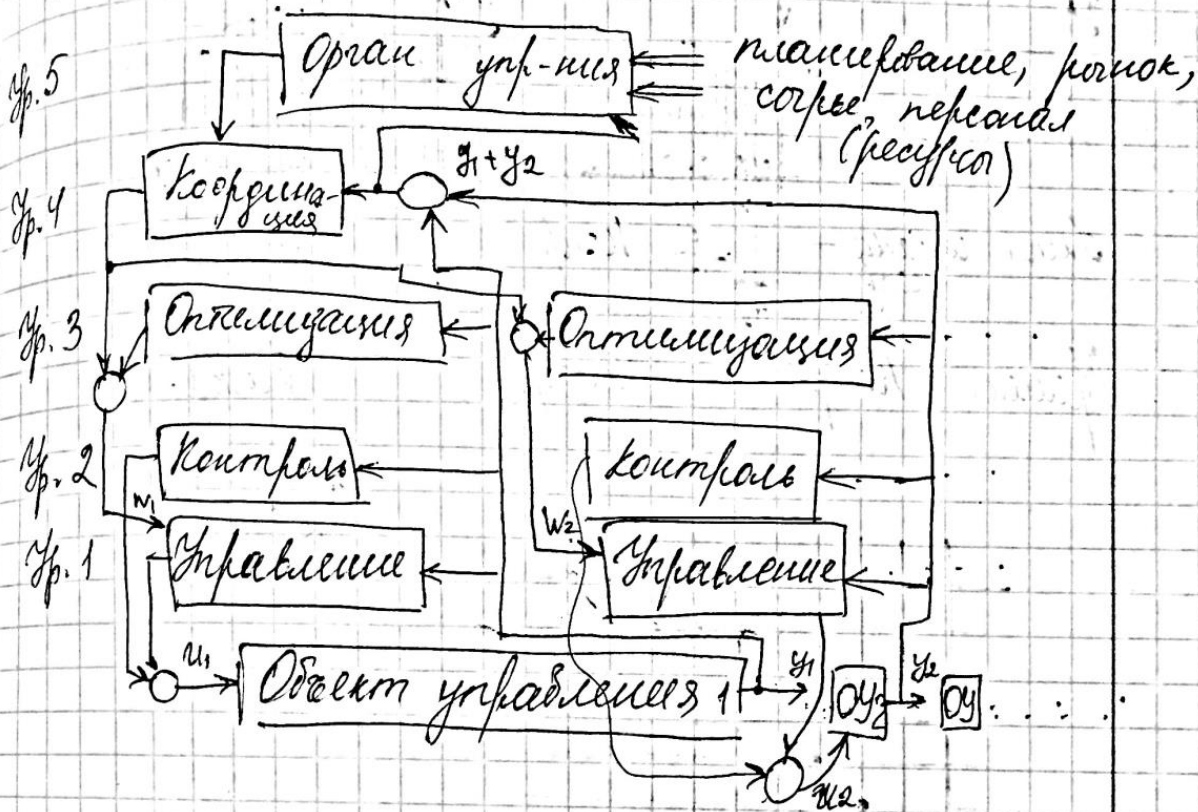 Ур. 5
Орган упр-ния
планирование, рынок,
сырье, персонал
(ресурсы)
y1 + y2
Ур. 4
Координа-
ция
Ур. 3
Оптимизация
Оптимизация
Ур. 2
Контроль
Контроль
w1
W2
Ур. 1
Управление
Управление
u1
Объект управления 1
y1
ОУ2
y2
ОУ
u2